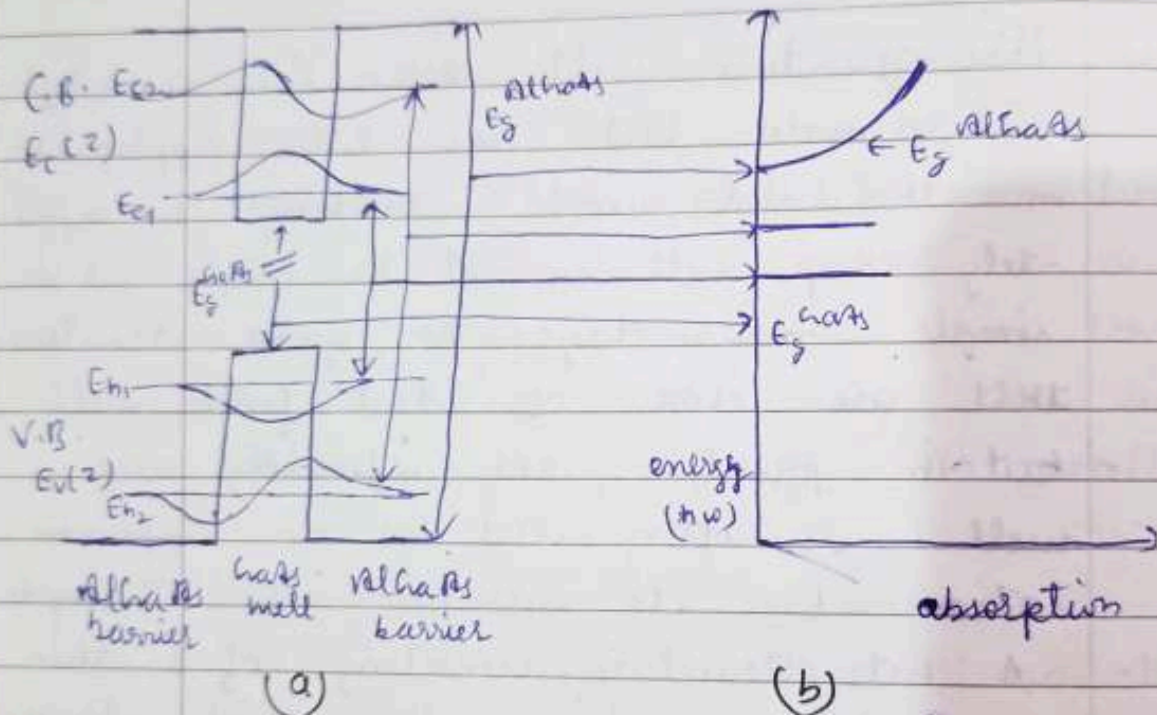 C.B. Ec2
Ec(z)
Ec1
Eg GaAs
Eg AlGaAs
Eh1
V.B
Ev(z)
Eh2
AlGaAs barrier
GaAs well
AlGaAs barrier
(a)
← Eg AlGaAs
Eg GaAs
energy
(ħω)
absorption
(b)